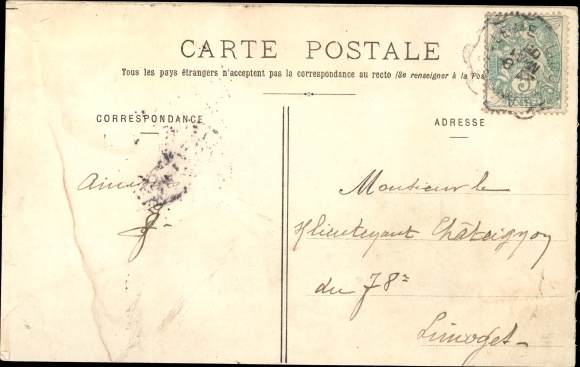 CARTE POSTALE
Tous les pays étrangers n'acceptent pas la correspondance au recto (Se renseigner à la Poste
CORRESPONDANCE
ADRESSE
Monsieur le
lieutenant Châtaignon
du 78e
Limoges